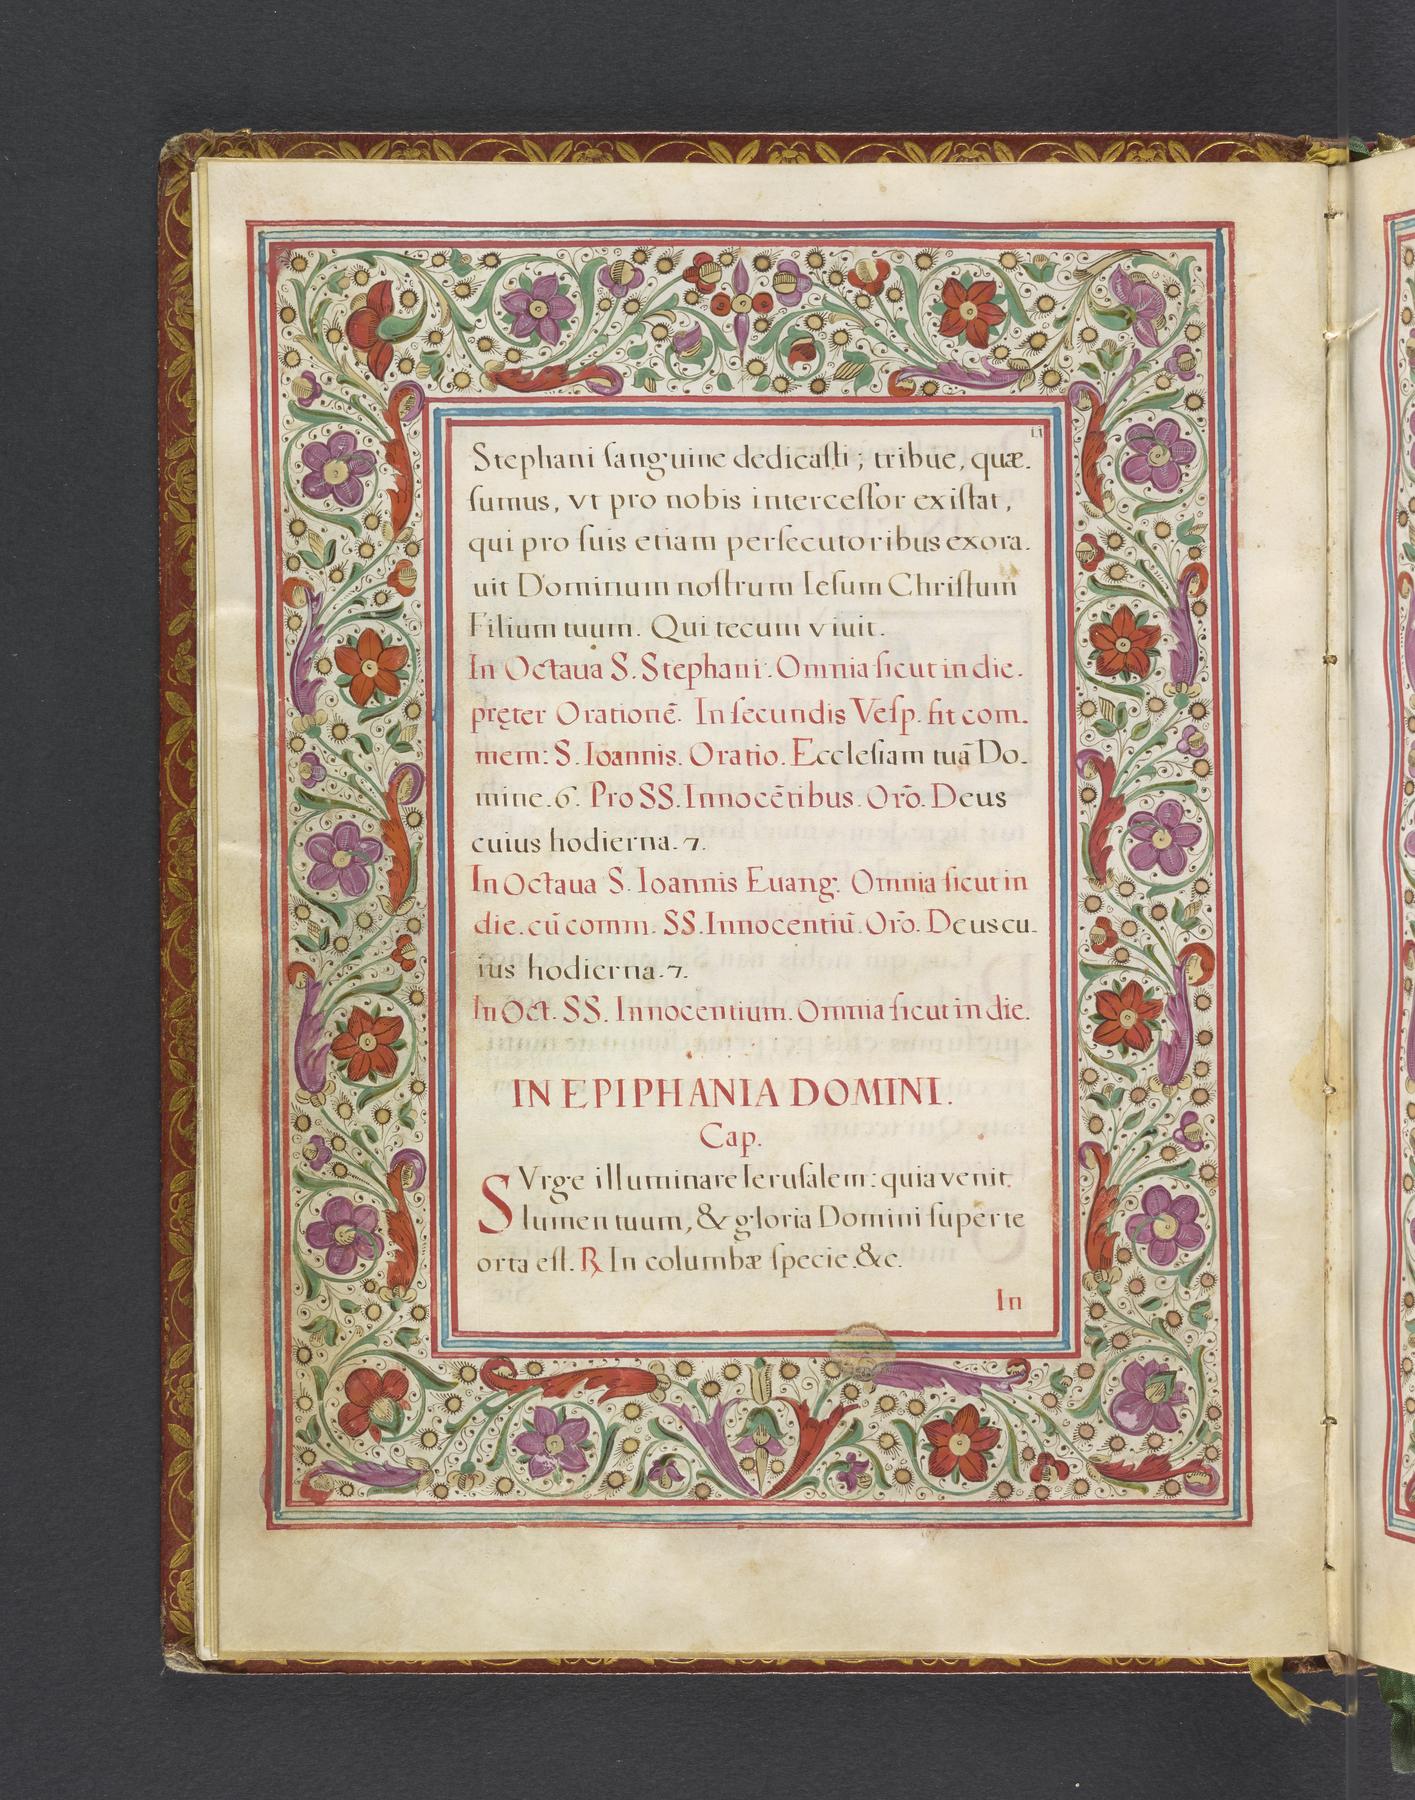 LI
Stephani ſanguine dedicaſti; tribue, quæ.
ſumus, vt pro nobis interceſſor exiſtat,
qui pro ſuis etiam perſecutoribus exora.
uit Dominum noſtrum Ieſum Chriſtum
Filium tuum. Qui tecum viuit.
In Octaua S. Stephani. Omnia ſicut in die.
pręter Orationē. In ſecundis Veſp. fit com.
mem: S. Ioannis. Oratio. Eccleſiam tuā Do.
mine. 6. Pro SS. Innocētibus. Orō. Deus
cuius hodierna. 7.
In Octaua S. Ioannis Euang. Omnia ſicut in
die. cū comm. SS. Innocentiū. Orō. Deus cu.
ius hodierna. 7.
In Oct. SS. Innocentium. Omnia ſicut in die.
IN EPIPHANIA DOMINI.
Cap.
SVrge illuminare Ieruſalem: quia venit
lumen tuum, & gloria Domini ſuper te
orta eſt. ℟ In columbæ ſpecie. &c.
In